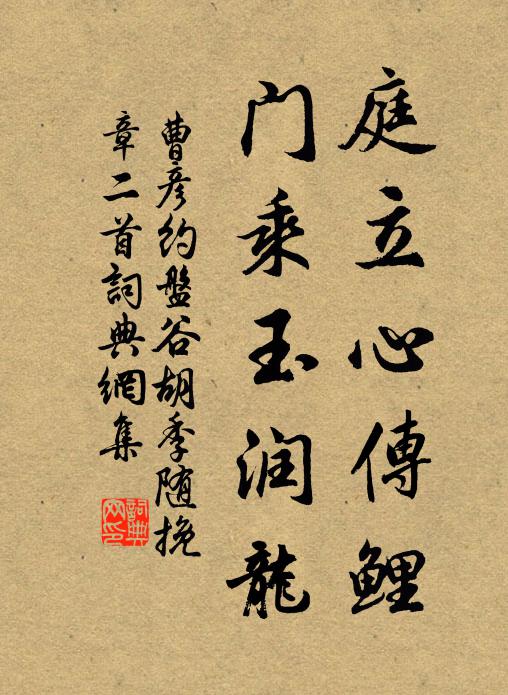 庭立心傳鯉
門乘玉润龍
曹彦約盤谷胡季随挽
章二首詞典網集
詞典網印